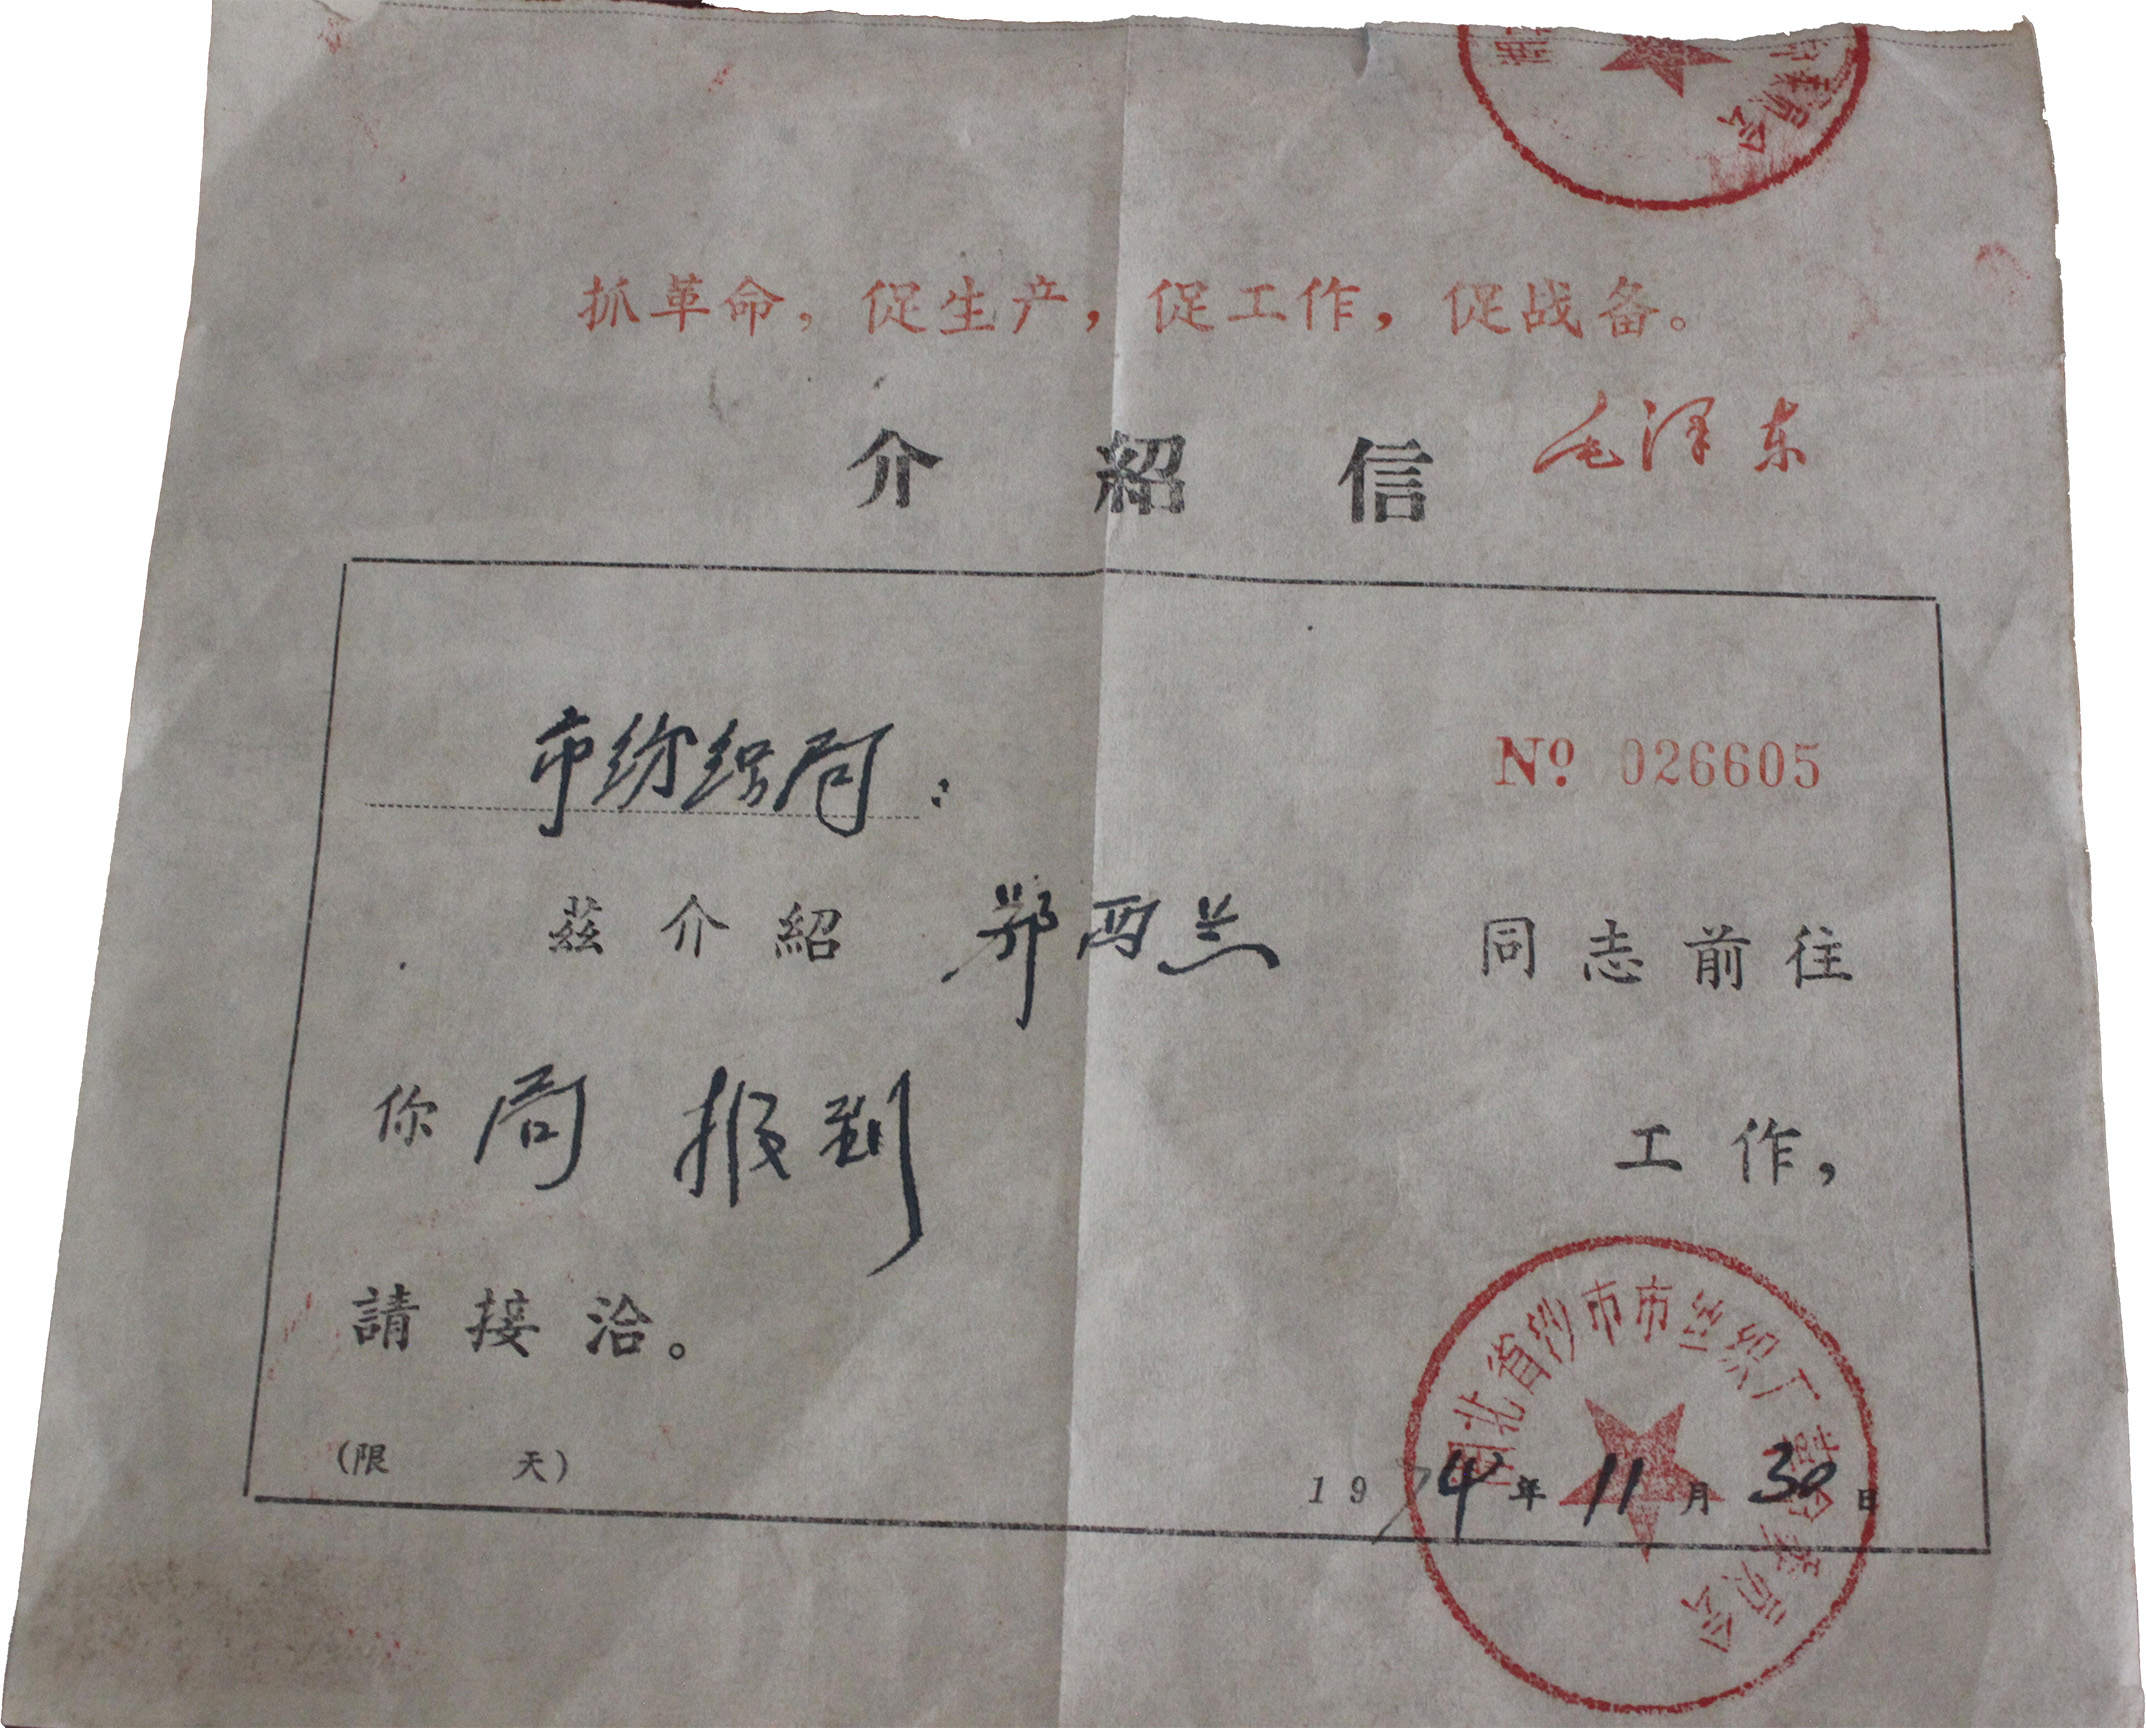 委员会
抓革命，促生产，促工作，促战备。
毛泽东
介紹信
市纺织局：
№ 026605
茲介紹 郑 兰 同志前往
你局 报到 工作，
請接洽。
(限 天)
1974年11月30日
湖北省沙市市丝织厂革命委员会